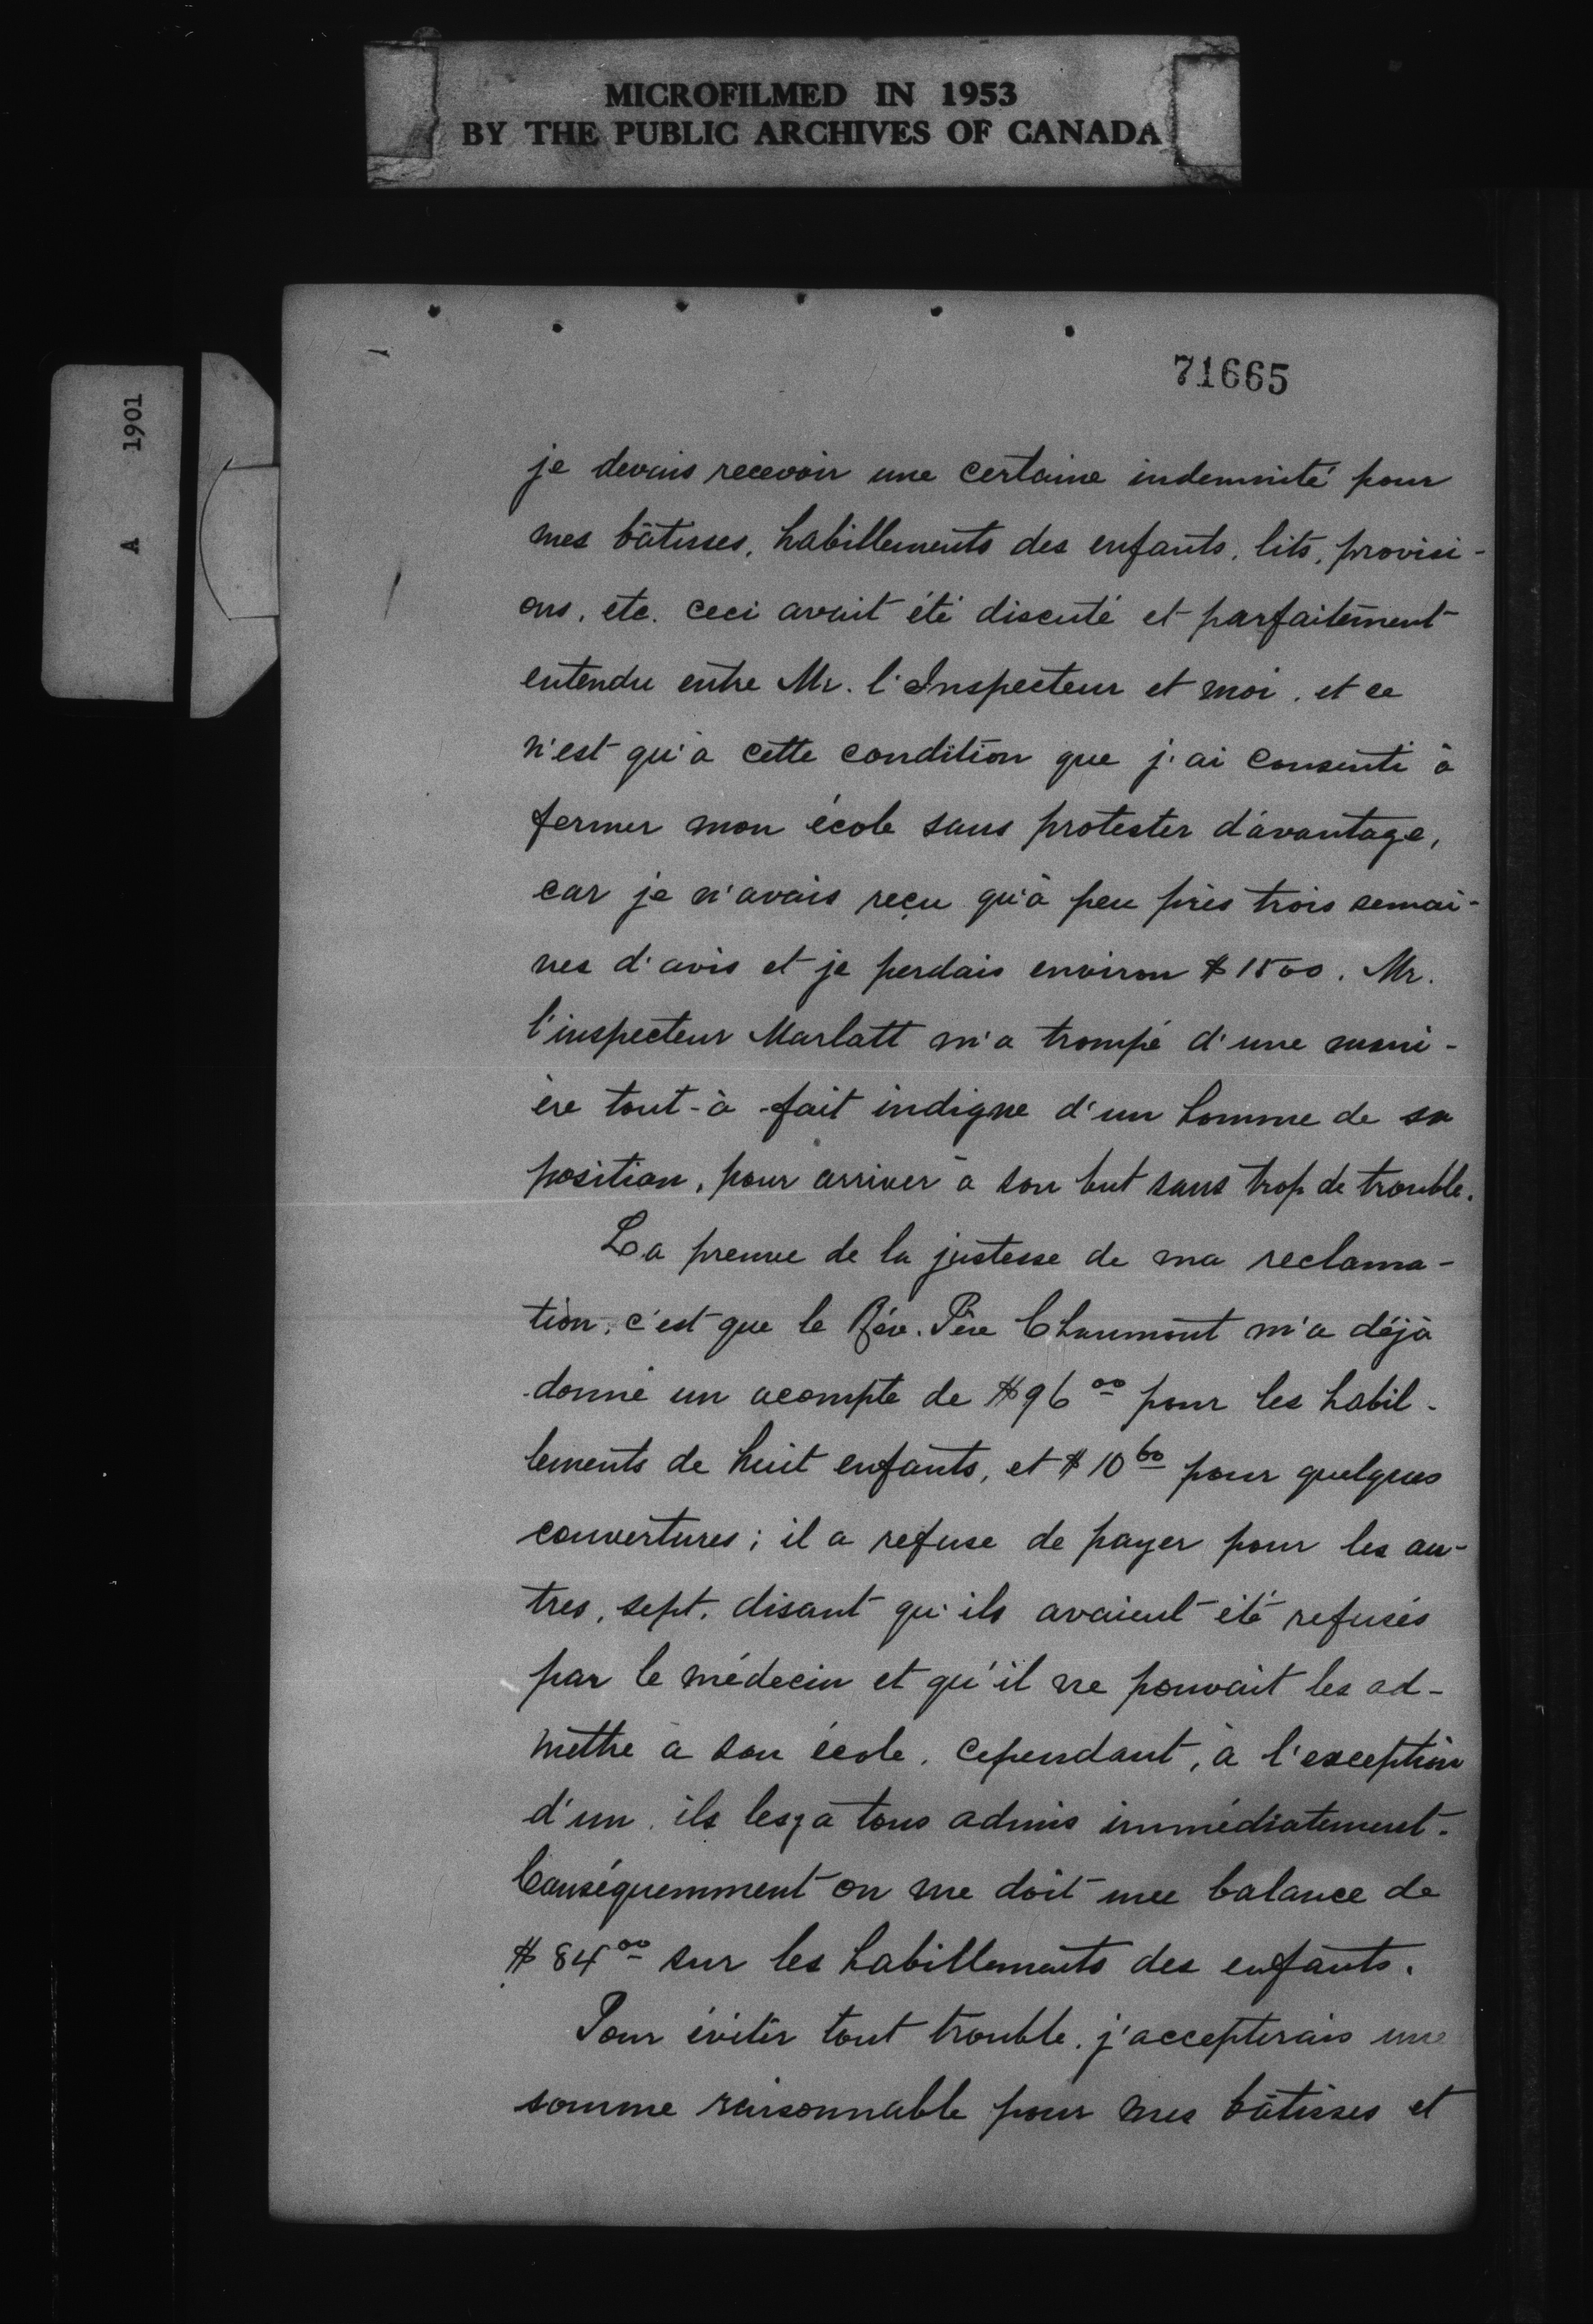 MICROFILMED IN 1953
BY THE PUBLIC ARCHIVES OF CANADA
A 1901
71665
je devais recevoir une certaine indemnité pour
mes bâtisses, habillements des enfants, lits, provisi-
ons, etc. ceci avait été discuté et parfaitement
entendu entre Mr. l'Inspecteur et moi, et ce
n'est qu'à cette condition que j'ai consenti à
fermer mon école sans protester d'avantage,
car je n'avais reçu qu'à peu près trois semai-
nes d'avis et je perdais environ $1500. Mr.
l'inspecteur Marlatt m'a trompé d'une mani-
ère tout-à-fait indigne d'un homme de sa
position, pour arriver à son but sans trop de trouble.
La preuve de la justesse de ma reclama-
tion, c'est que le Rév. Père Chaumont m'a déjà
donné un acompte de $96.00 pour les habil-
lements de huit enfants, et $10.60 pour quelques
couvertures; il a refuse de payer pour les au-
tres, sept, disant qu'ils avaient été refusés
par le médecin et qu'il ne pouvait les ad-
mettre à son école. Cependant, à l'exception
d'un, ils les, a tous admis immédiatement.
Conséquemment on me doit une balance de
$84.00 sur les habillements des enfants.
Pour éviter tout trouble, j'accepterais une
somme raisonnable pour mes bâtisses et